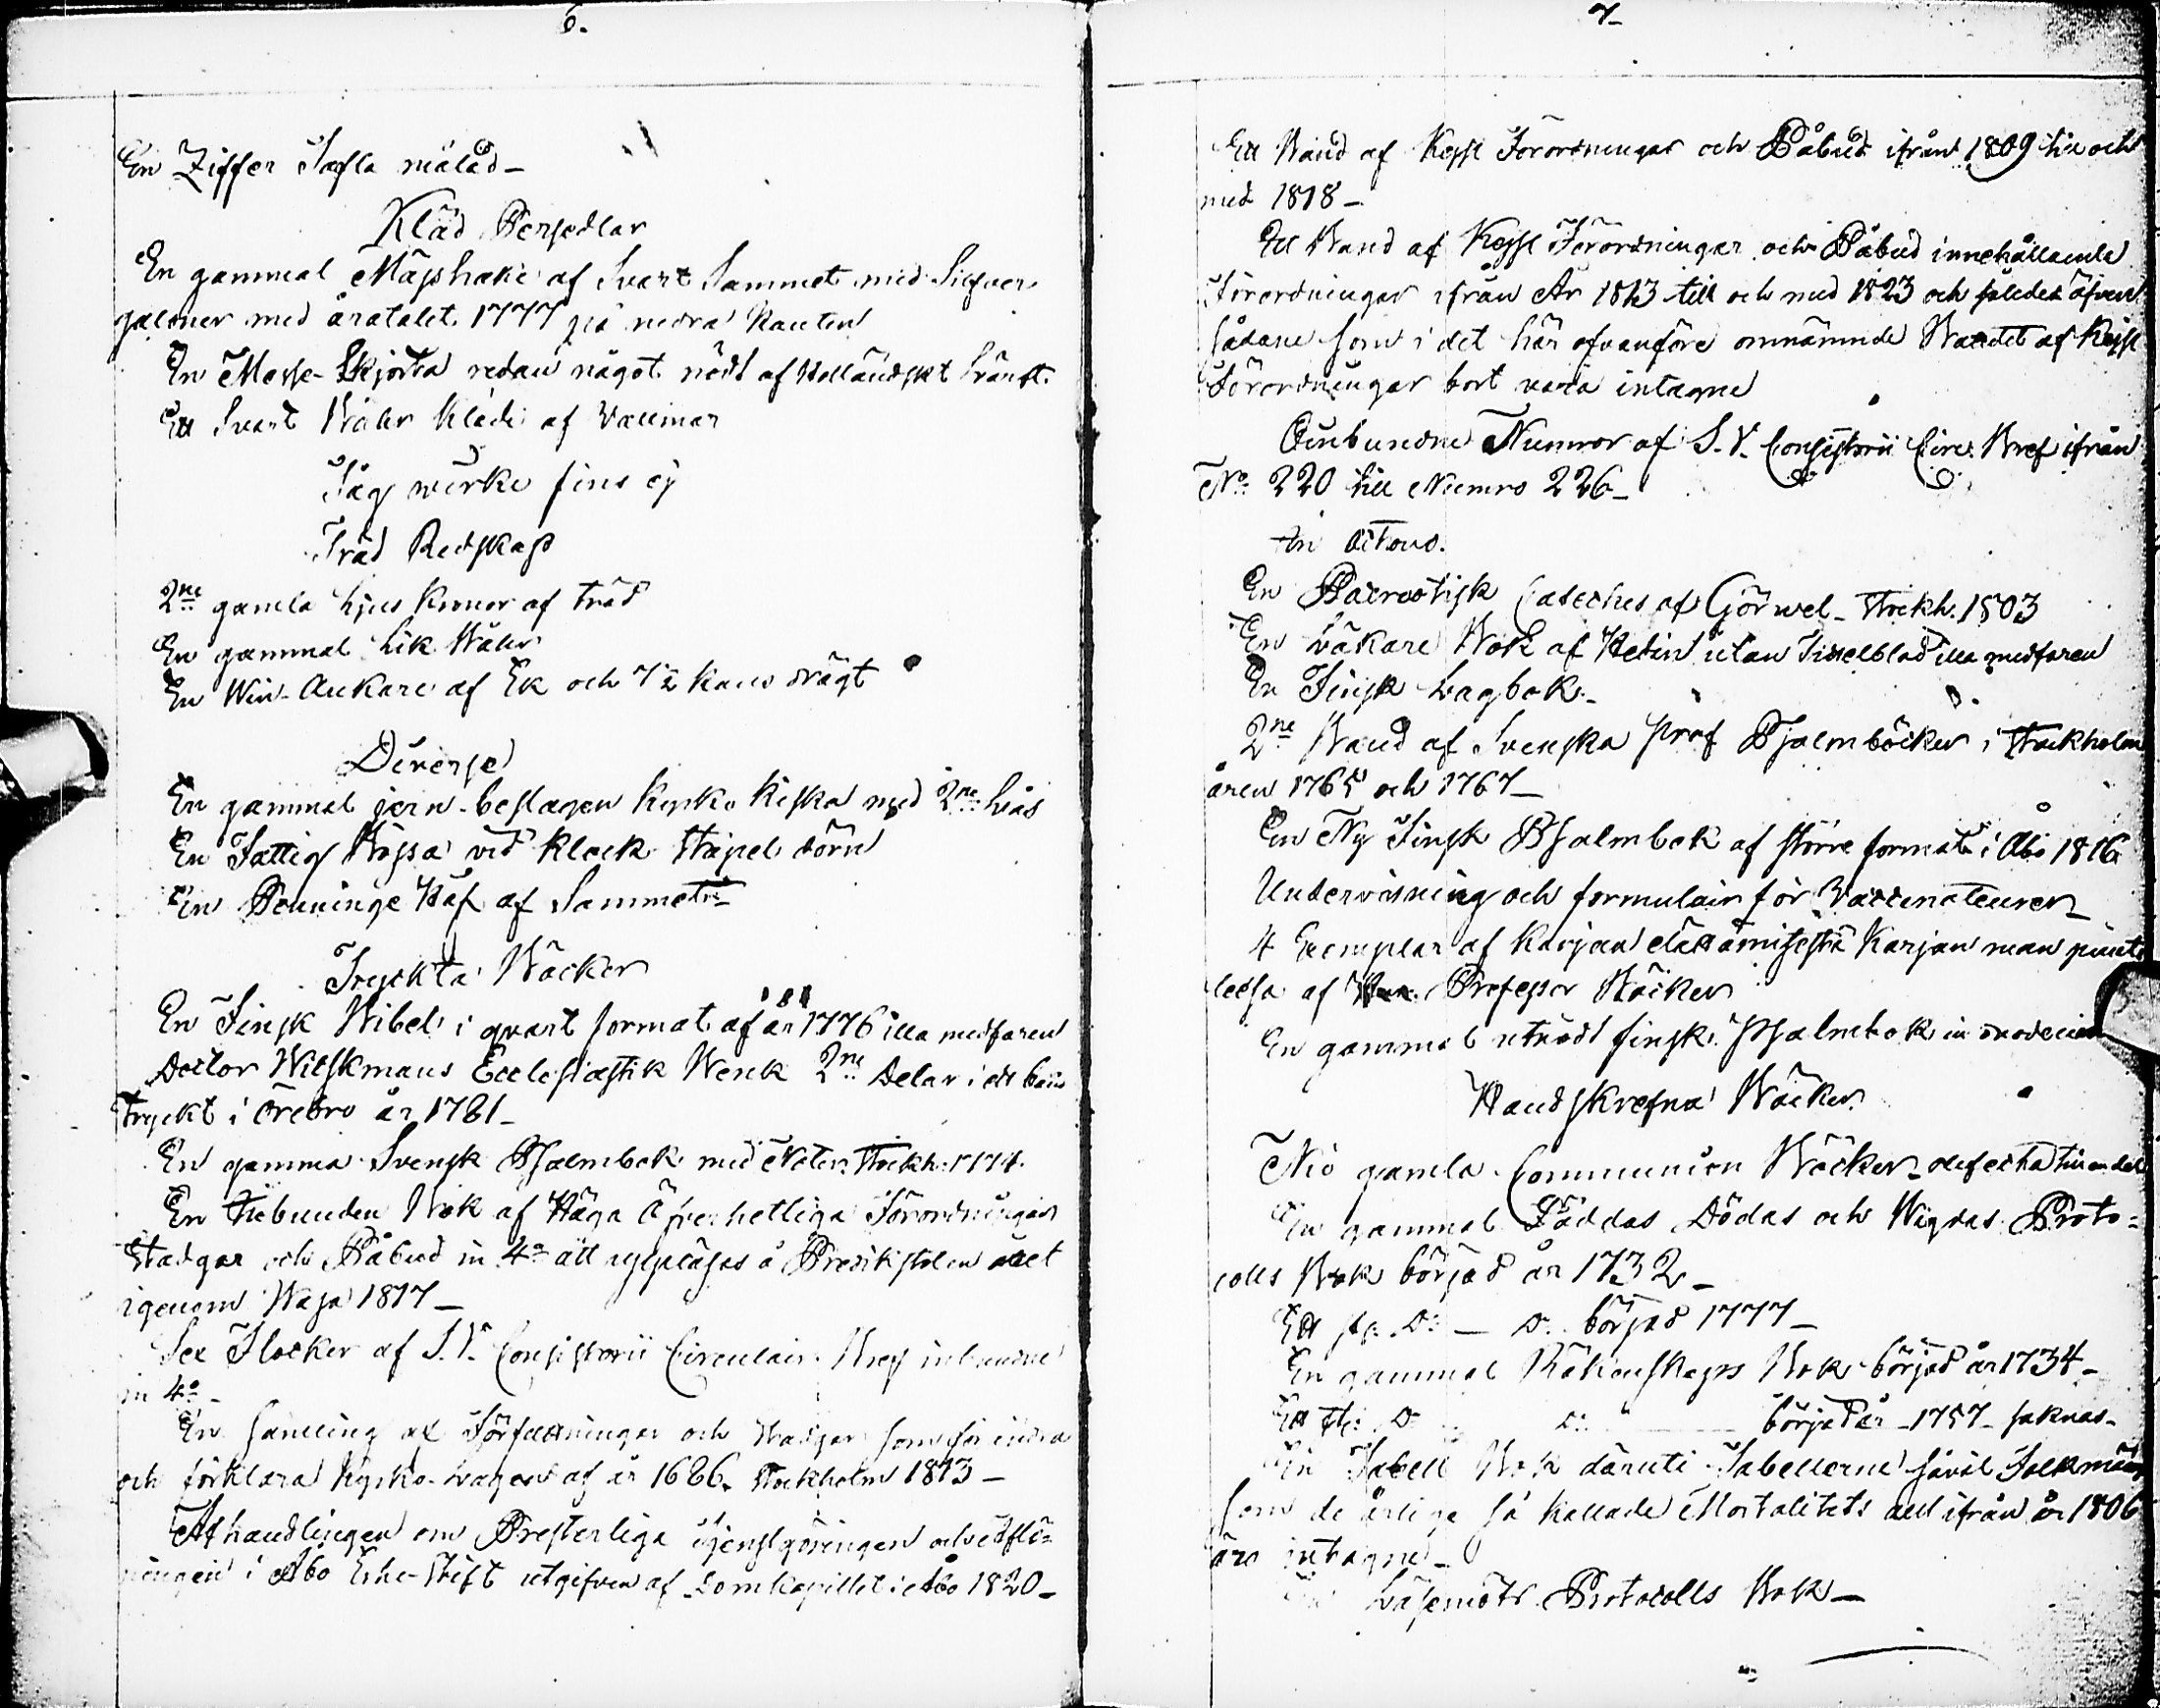 6.
En Ziffer Tafla målad -
Kläd Persedlar
En gammal Mässhake af Svart Sammet med Silfver
galoner med åratalet 1777 på nedra kanten
En Messe-Skjorta redan något nödt af Holländskt Lärft.
Ett Svart Båhr kläde af Vallmar
Tåg wirke fins ej
Träd Redskap
2ne gamla ljus kronor af träd
En gammal Lik Båhr
En Win-Ankare af Ek och 7½ kans drägt
Diverse
En gammal jern-beslagen kyrko kista med 2ne Lås
En Fattig Bössa vid klock Stapels dörn
En Penninge Håf af Sammet
Tryckta Böcker
En Finsk Bibel i qvart format af år 1776 illa medfaren
Doctor Wilskmans Ecclesiastik Werck 2ne Delar i ett band
Tryckt i Örebro år 1781 -
En gammal Svensk Psalmbok med Noter. Stockh: 1774.
En Inbunden Bok af Höga Öfverhetliga Förordningar
Stadgar och Påbud in 4o att uppläsas å Predikstolen året
igenom Wasa 1817 -
Sex Flockar af S.V. Consistorii Circulair Bref inbundne
in 4o -
En Samling af Författningar och Stadgar som förändra
och förklara Kyrko-Lagen af år 1686. Stockholm 1813 -
Afhandlingen om Presterliga Tjenstgöringen och edfli-
ningen i Åbo Erke-Stift utgifven af Domkapitlet i Åbo 1820 -
7
Ett Band af Kejserl Förordningar och Påbud ifrån 1809 till och
med 1818 -
Ett Band af Kejserl Förordningar och Påbud innehållande
Förordningar ifrån År 1813 till och med 1823 och således äfven
sådane som i det här ofvanföre omnämnde Bandet af Kejserl
Förordningar bort vara intagne
Oinbundne Numror af S.V. Consistorii Circ. Bref ifrån
No: 220 till Numro 226 -
In Octavo.
En Patriotisk Cateches af Gjörwel - Stockh. 1803
En Läkare Bok af Hedin utan Titelblad illa medfaren
En Finsk Lagbok -
2ne Band af Svenska Prof Psalmböcker i Stockholm
åren 1765 och 1767 -
En Ny Finsk Psalmbok af större format i Åbo 1816
Undervisning och formulair för Vaccinateurer -
4 Exemplar af Karjan elättämisestä Karjan man puut
leesa af Professor Böcker
En gammal utnödt finsk Psalmbok in duodecimo
Handskrefna Böcker
Nio gamla Communion Böcker - defecta til en del
En gammal Föddas Dödas och Wigdas Proto-
colls Bok börjad år 1732 -
Ett st: D: - D: börjad 1777 -
En gammal Räkenskaps Bok börjad år 1734 -
Ett st: D: D: börjad år - 1757 - saknas -
En Tabell Bok däruti Tabellerne såväl Folkmängd
som de årlige så kallade Mortalitets allt ifrån år 1806
äro intagne -
Läsemöts Protocolls Bok -